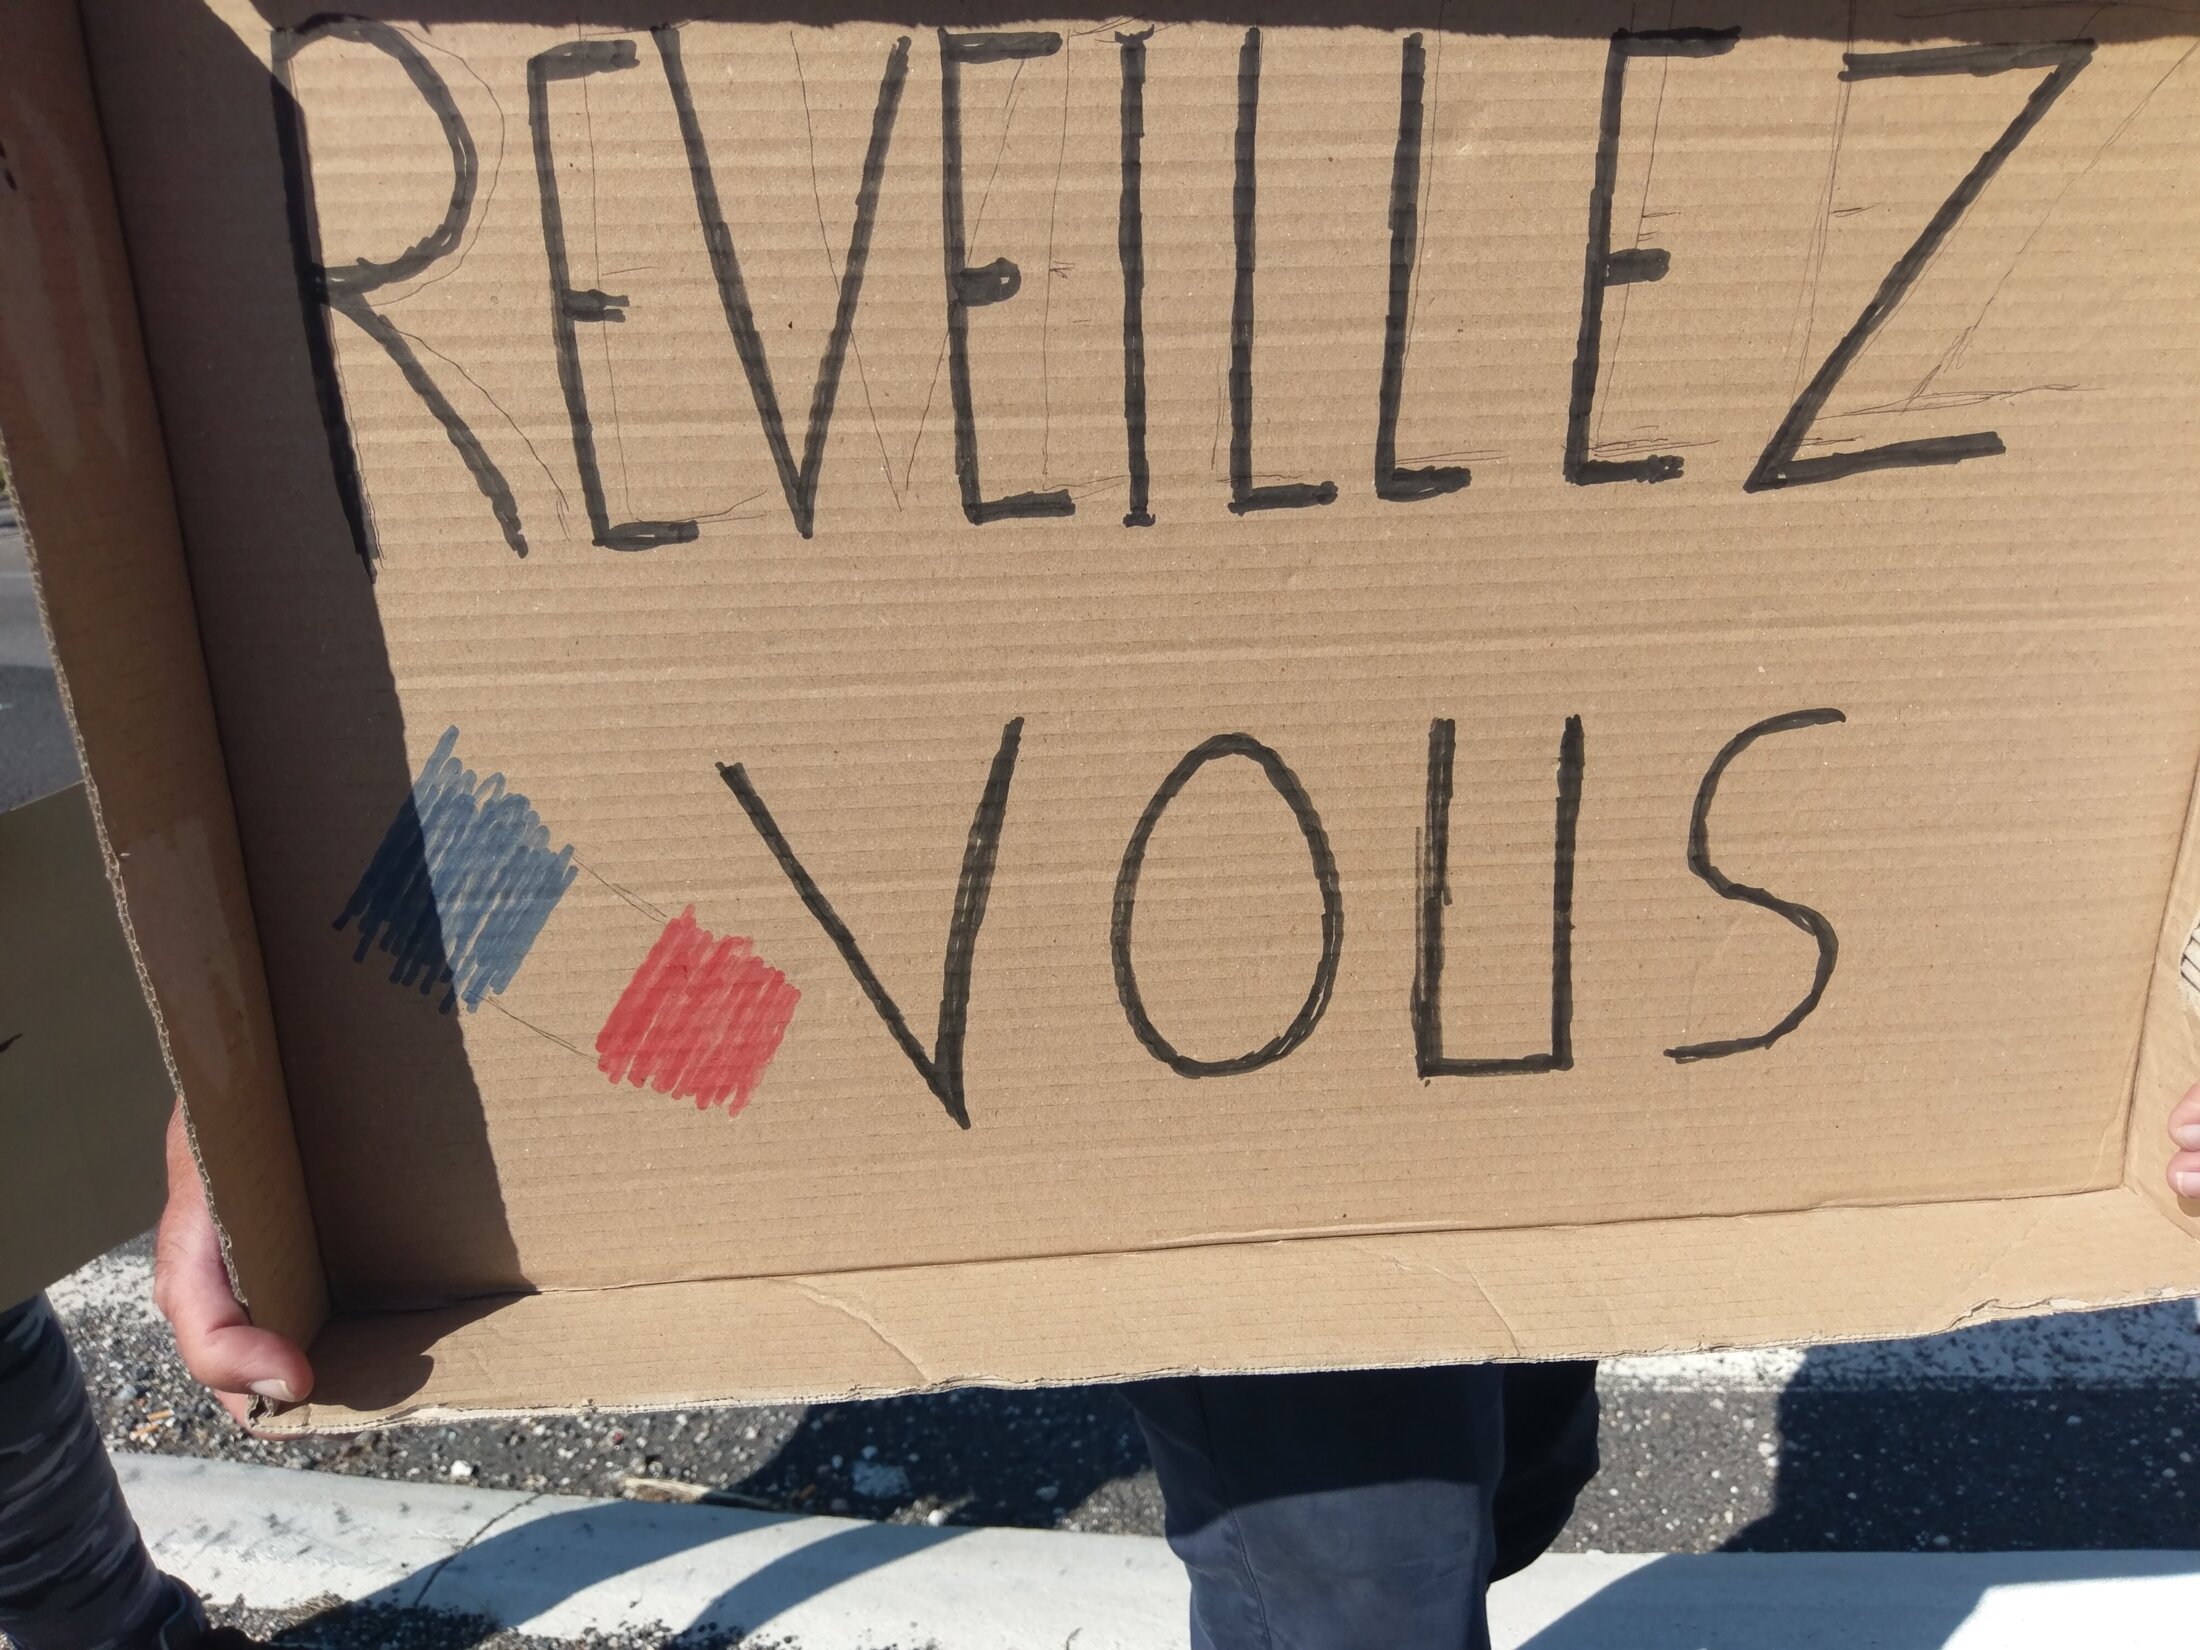 REVEILLEZ
VOUS